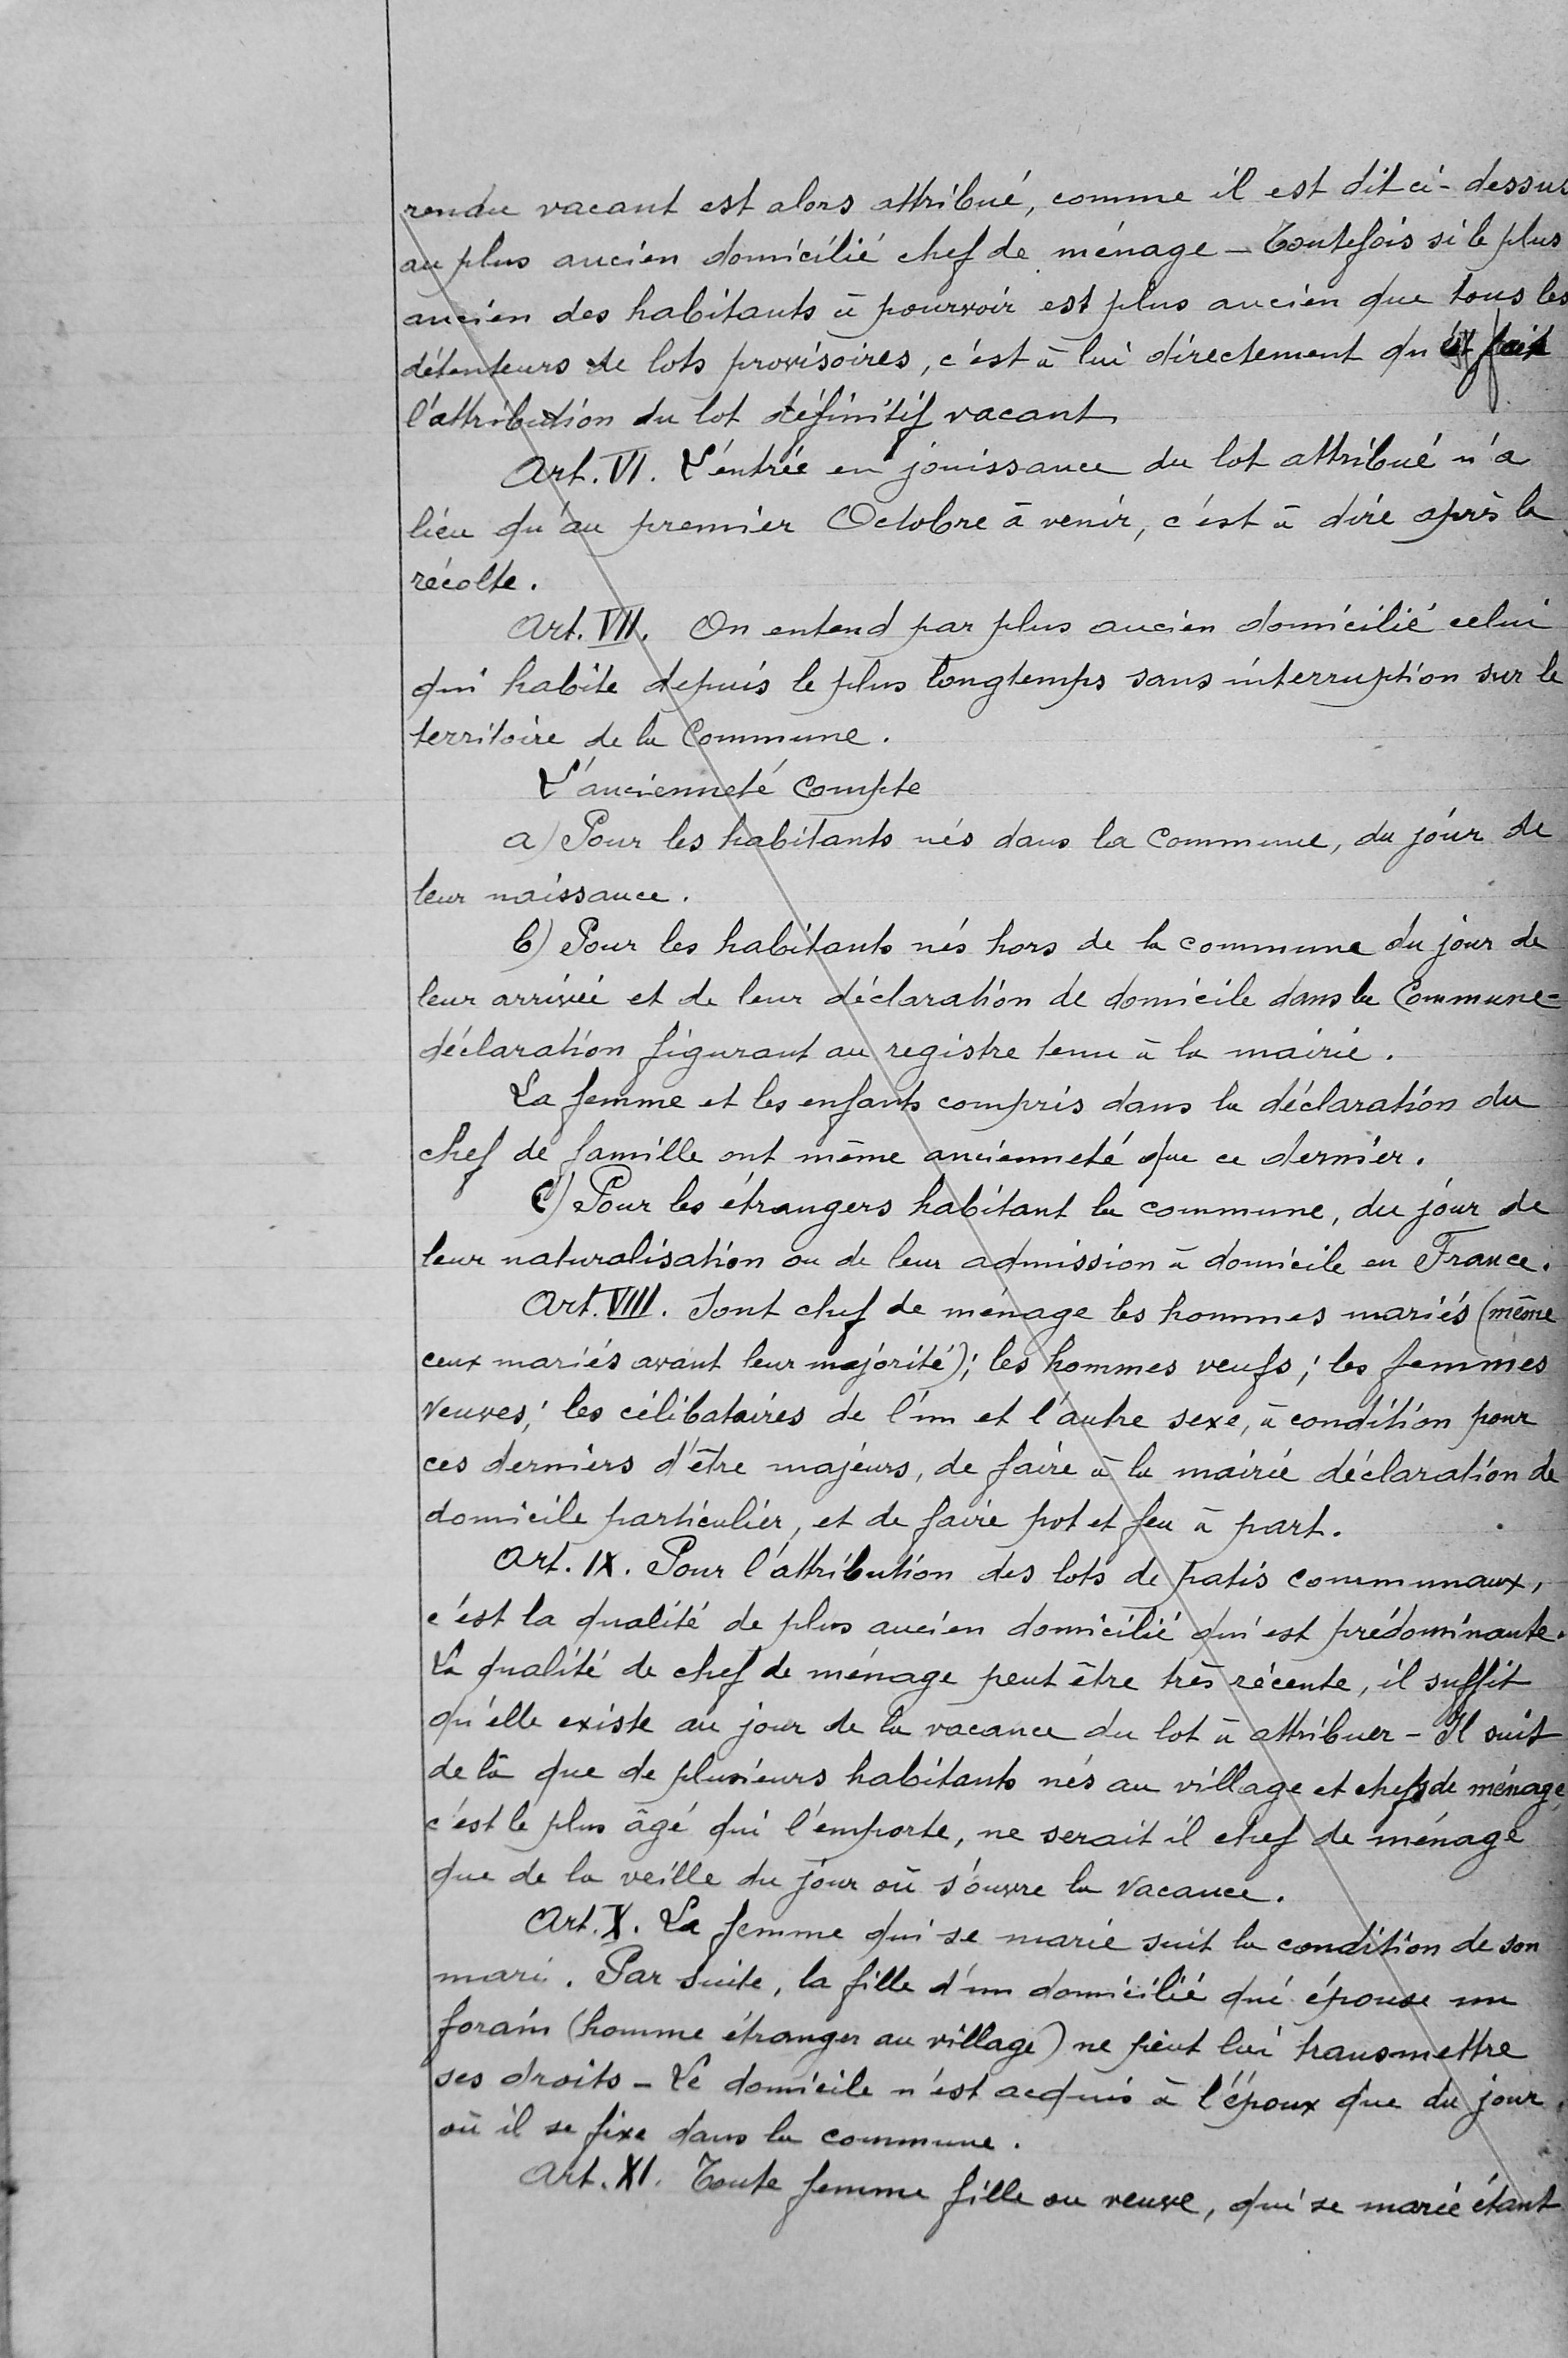 rendu vacant est alors attribué, comme il est dit ci-dessus
au plus ancien domicilié chef de ménage - Toutefois si le plus
ancien des habitants à pourvoir est plus ancien que tous les
détenteurs de lots provisoires, c'est à lui directement qu'est fait
l'attribution du lot définitif vacant
Art. VI. L'entrée en jouissance du lot attribué n'a
lieu qu'au premier Octobre à venir, c'est à dire après la
récolte.
Art. VII. On entend par plus ancien domicilié celui
qui habite depuis le plus longtemps sans interruption sur le
territoire de la Commune.
L'ancienneté compte
a) Pour les habitants nés dans la Commune, du jour de
leur naissance.
b) Pour les habitants nés hors de la commune du jour de
leur arrivée et de leur déclaration de domicile dans la Commune -
déclaration figurant au registre tenu à la mairie.
La femme et les enfants compris dans la déclaration du
chef de famille ont même ancienneté que ce dernier.
c) Pour les étrangers habitant la commune, du jour de
leur naturalisation ou de leur admission à domicile en France.
Art. VIII. Sont chef de ménage les hommes mariés (même
ceux mariés avant leur majorité); les hommes veufs; les femmes
veuves; les célibataires de l'un et l'autre sexe, à condition pour
ces derniers d'être majeurs, de faire à la mairie déclaration de
domicile particulier, et de faire pot et feu à part.
Art. IX. Pour l'attribution des lots de patis communaux,
c'est la qualité de plus ancien domicilié qui est prédominante.
La qualité de chef de ménage peut être très récente, il suffit
qu'elle existe au jour de la vacance du lot à attribuer - Il suit
de là que de plusieurs habitants nés au village et chefs de ménage,
c'est le plus âgé qui l'emporte, ne serait il chef de ménage
que de la veille du jour où s'ouvre la vacance.
Art. X. La femme qui se marie suit la condition de son
mari. Par suite, la fille d'un domicilié qui épouse un
forain (homme étranger au village) ne peut lui transmettre
ses droits - Le domicile n'est acquis à l'époux que du jour
où il se fixe dans la commune.
Art. XI. Toute femme fille ou veuve, qui se marie étant